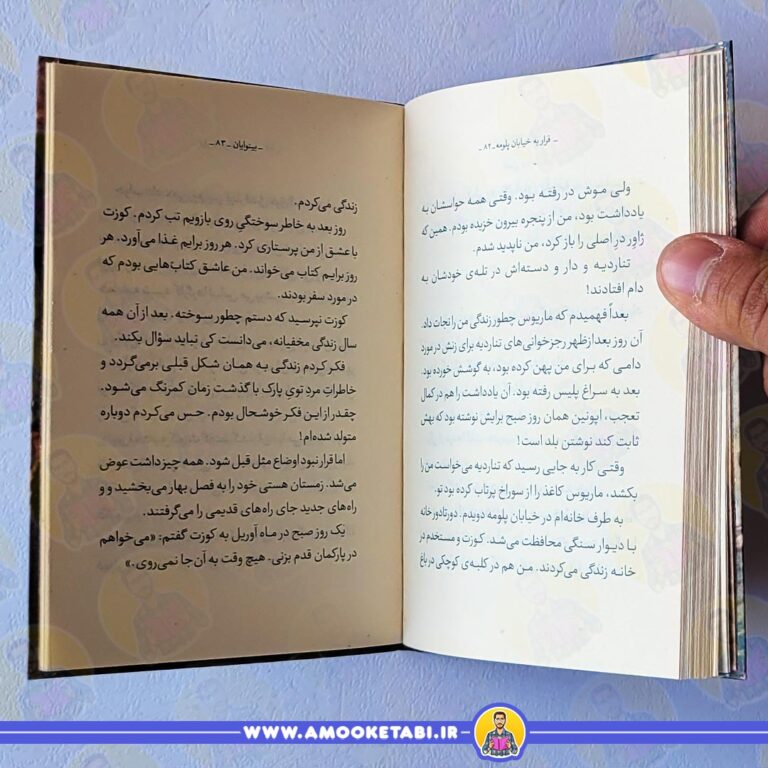 - فرار به خیابان پلومه -۸۲-
ولی موش در رفته بود. وقتی همه حواسشان به
یادداشت بود، من از پنجره بیرون خزیده بودم. همین که
ژاور درِ اصلی را باز کرد، من ناپدید شدم.
تناردیه و دار و دسته‌اش در تله‌ی خودشان به
دام افتادند!
بعداً فهمیدم که ماریوس چطور زندگی من را نجات داد.
آن روز بعدازظهر رجزخوانی‌های تناردیه برای زنش در مورد
دامی که برای من پهن کرده بود، به گوشش خورده بود.
بعد به سراغ پلیس رفته بود. آن یادداشت را هم در کمال
تعجب، اپونین همان روز صبح برایش نوشته بود که بهش
ثابت کند نوشتن بلد است!
وقتی کار به جایی رسید که تناردیه می‌خواست من را
بکشد، ماریوس کاغذ را از سوراخ پرتاب کرده بود تو.
به طرف خانه‌ام در خیابان پلومه دویدم. دورتادور خانه
با دیوار سنگی محافظت می‌شد. کوزت و مستخدم در
خانه زندگی می‌کردند. من هم در کلبه‌ی کوچکی در باغ
- بینوایان -۸۳-
زندگی می‌کردم.
روز بعد به خاطر سوختگیِ روی بازویم تب کردم. کوزت
با عشق از من پرستاری کرد. هر روز برایم غذا می‌آورد. هر
روز برایم کتاب می‌خواند. من عاشق کتاب‌هایی بودم که
در مورد سفر بودند.
کوزت نپرسید که دستم چطور سوخته. بعد از آن همه
سال زندگی مخفیانه، می‌دانست کی نباید سؤال بکند.
فکر کردم زندگی به همان شکل قبلی برمی‌گردد و
خاطراتِ مردِ تویِ پارک با گذشت زمان کمرنگ می‌شود.
چقدر از این فکر خوشحال بودم. حس می‌کردم دوباره
متولد شده‌ام!
اما قرار نبود اوضاع مثل قبل شود. همه چیز داشت عوض
می‌شد. زمستان هستی خود را به فصل بهار می‌بخشید و و
راه‌های جدید جای راه‌های قدیمی را می‌گرفتند.
یک روز صبح در ماه آوریل به کوزت گفتم: «می‌خواهم
در پارکمان قدم بزنی. هیچ وقت به آن‌جا نمی‌روی.»
WWW.AMOOKETABI.IR